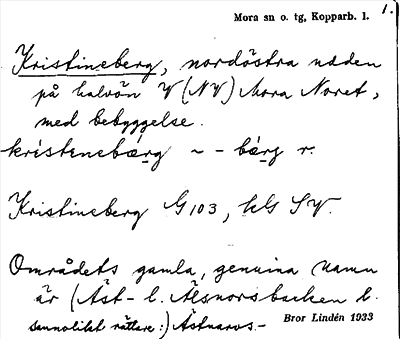 Mora sn o. tg, Kopparb. l. 1.
Kristineberg, nordöstra udden
på halvön V (NV) Mora Noret,
med bebyggelse.
kristenebärg ~ - bärg r.
Kristineberg G 103, kls SV.
Områdets gamla, genuina namn
är (Äst- l. Älsnorsbacken l.
sannolikt rättare:) Ästnarvs.-
Bror Lindén 1933